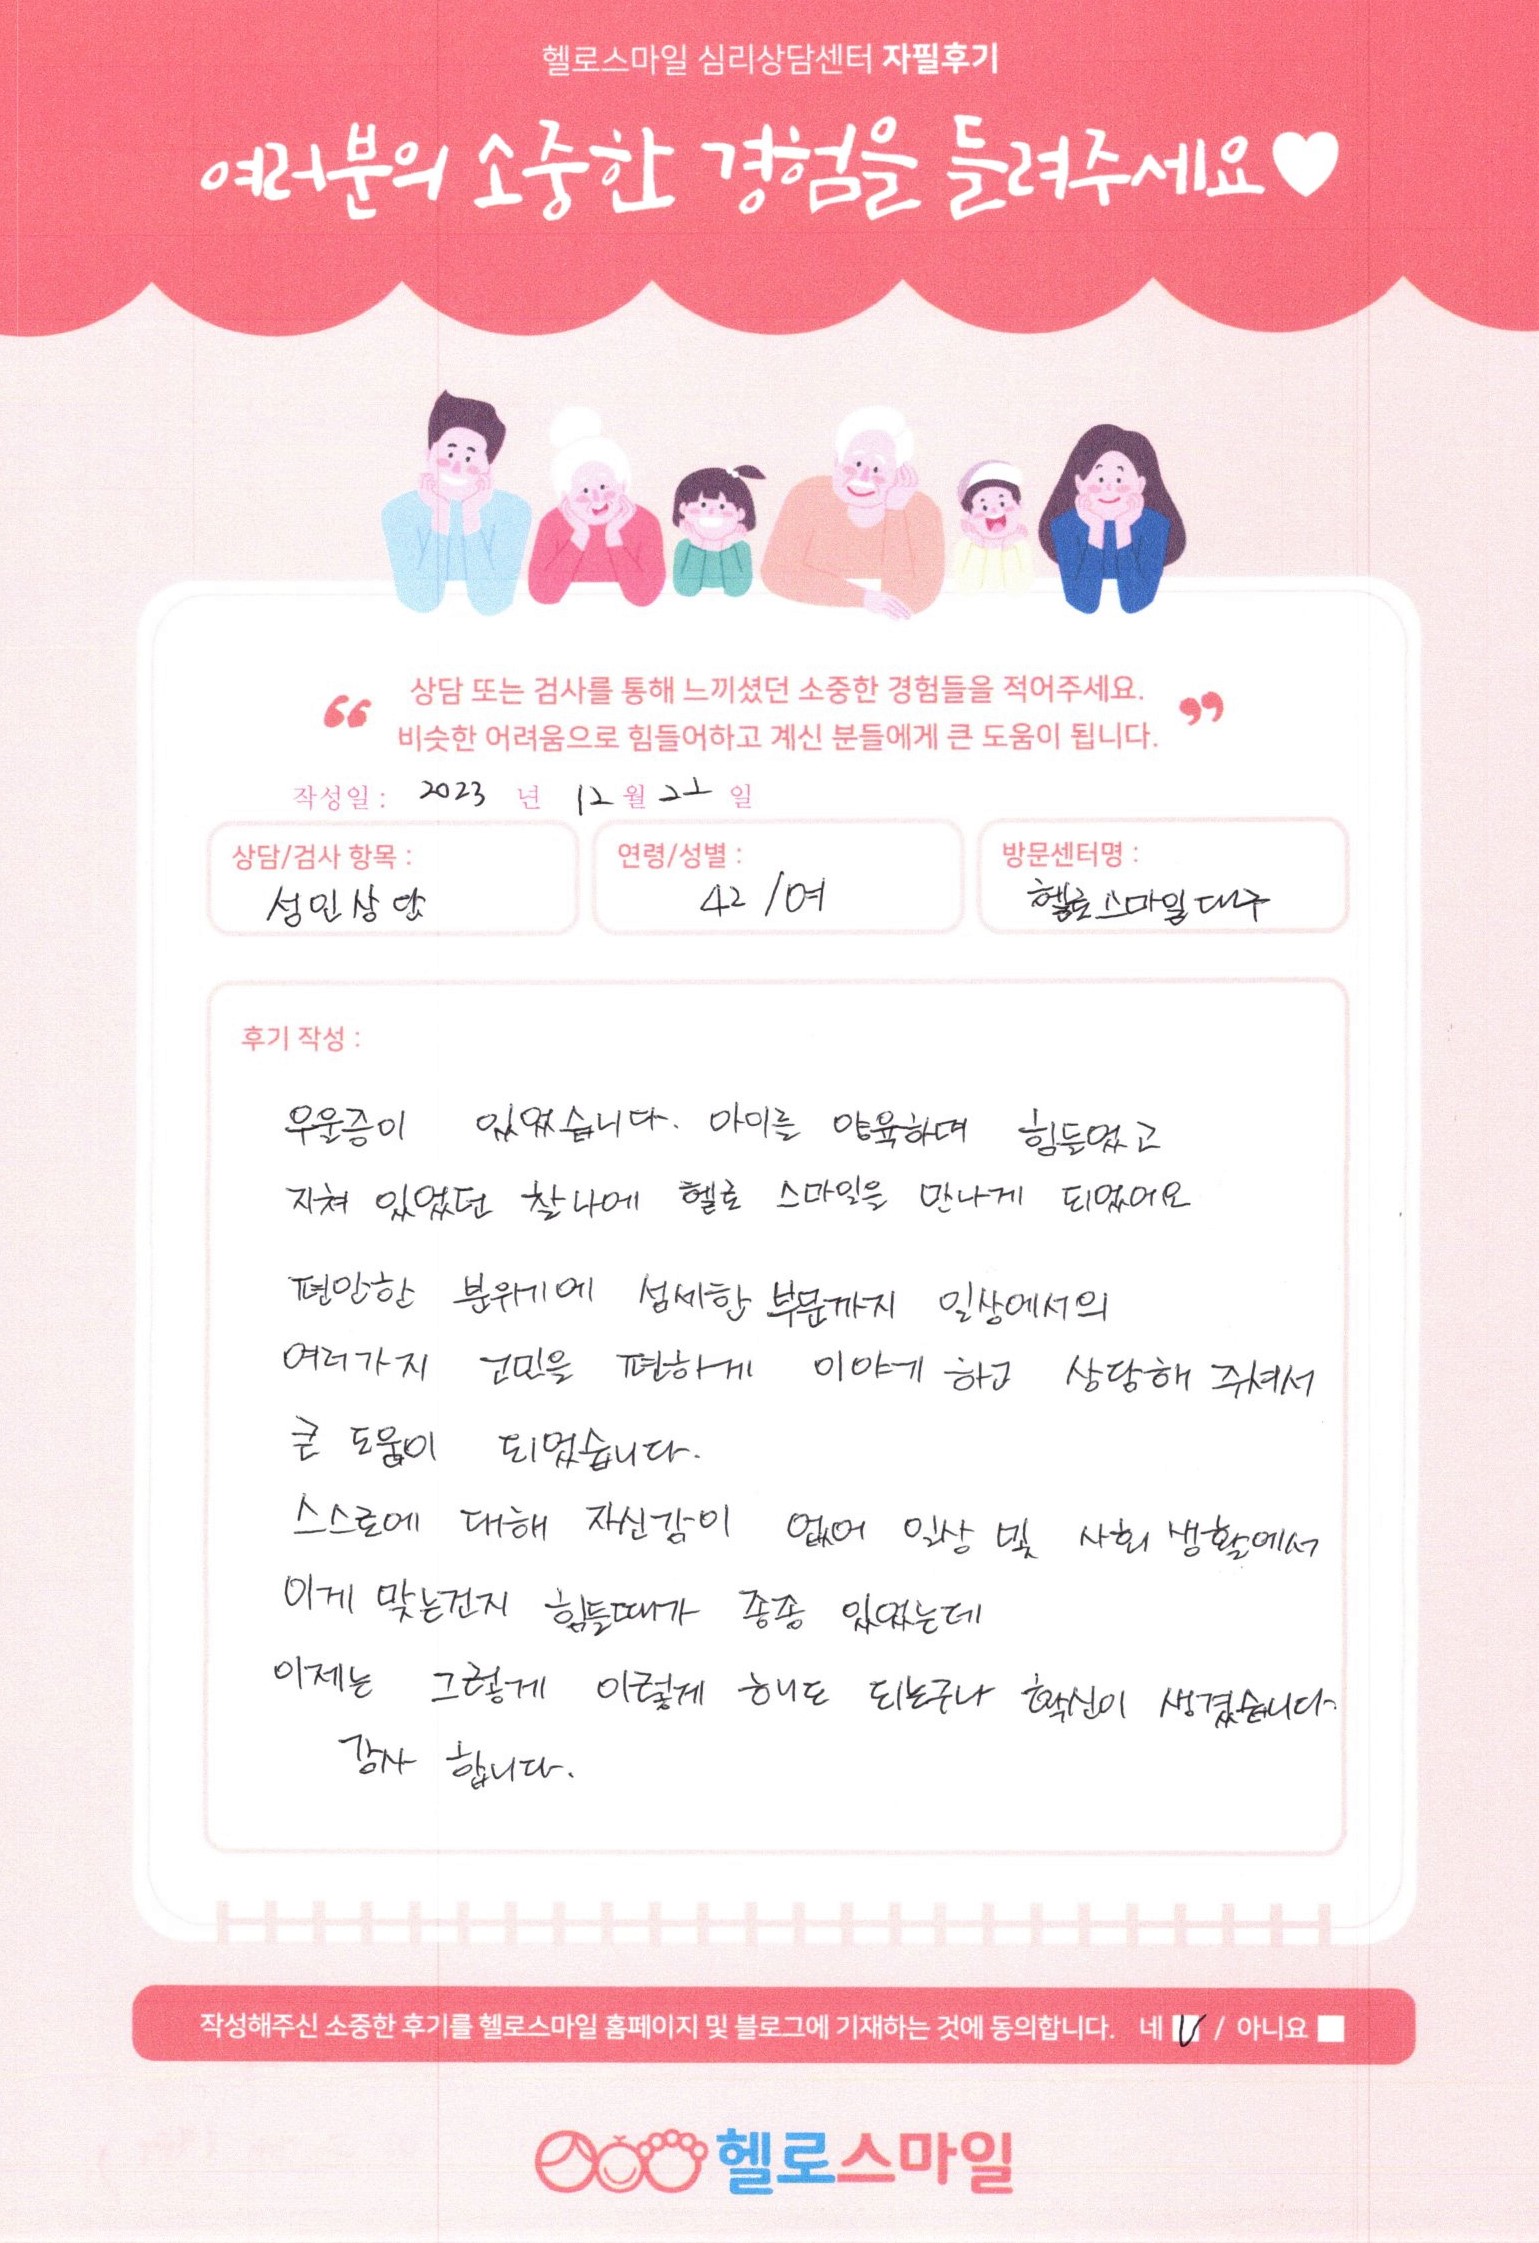 헬로스마일 심리상담센터 자필후기
여러분의 소중한 경험을 들려주세요♥
“ 상담 또는 검사를 통해 느끼셨던 소중한 경험들을 적어주세요. ”
비슷한 어려움으로 힘들어하고 계신 분들에게 큰 도움이 됩니다.
작성일 : 2023 년 12 월 21 일
상담/검사 항목 :
성인상담
연령/성별 :
42 / 여
방문센터명 :
헬로스마일대구
후기 작성 :
우울증이 있었습니다. 아이를 양육하며 힘들었고
지쳐 있었던 찰나에 헬로 스마일을 만나게 되었어요
편안한 분위기에 섬세한 부문까지 일상에서의
여러가지 고민을 편하게 이야기 하고 상담해 주셔서
큰 도움이 되었습니다.
스스로에 대해 자신감이 없어 일상 및 사회 생활에서
이게 맞는건지 힘들때가 종종 있었는데
이제는 그렇게 이렇게 해도 되는구나 확신이 생겼습니다.
감사 합니다.
작성해주신 소중한 후기를 헬로스마일 홈페이지 및 블로그에 기재하는 것에 동의합니다. 네 V / 아니요
헬로스마일